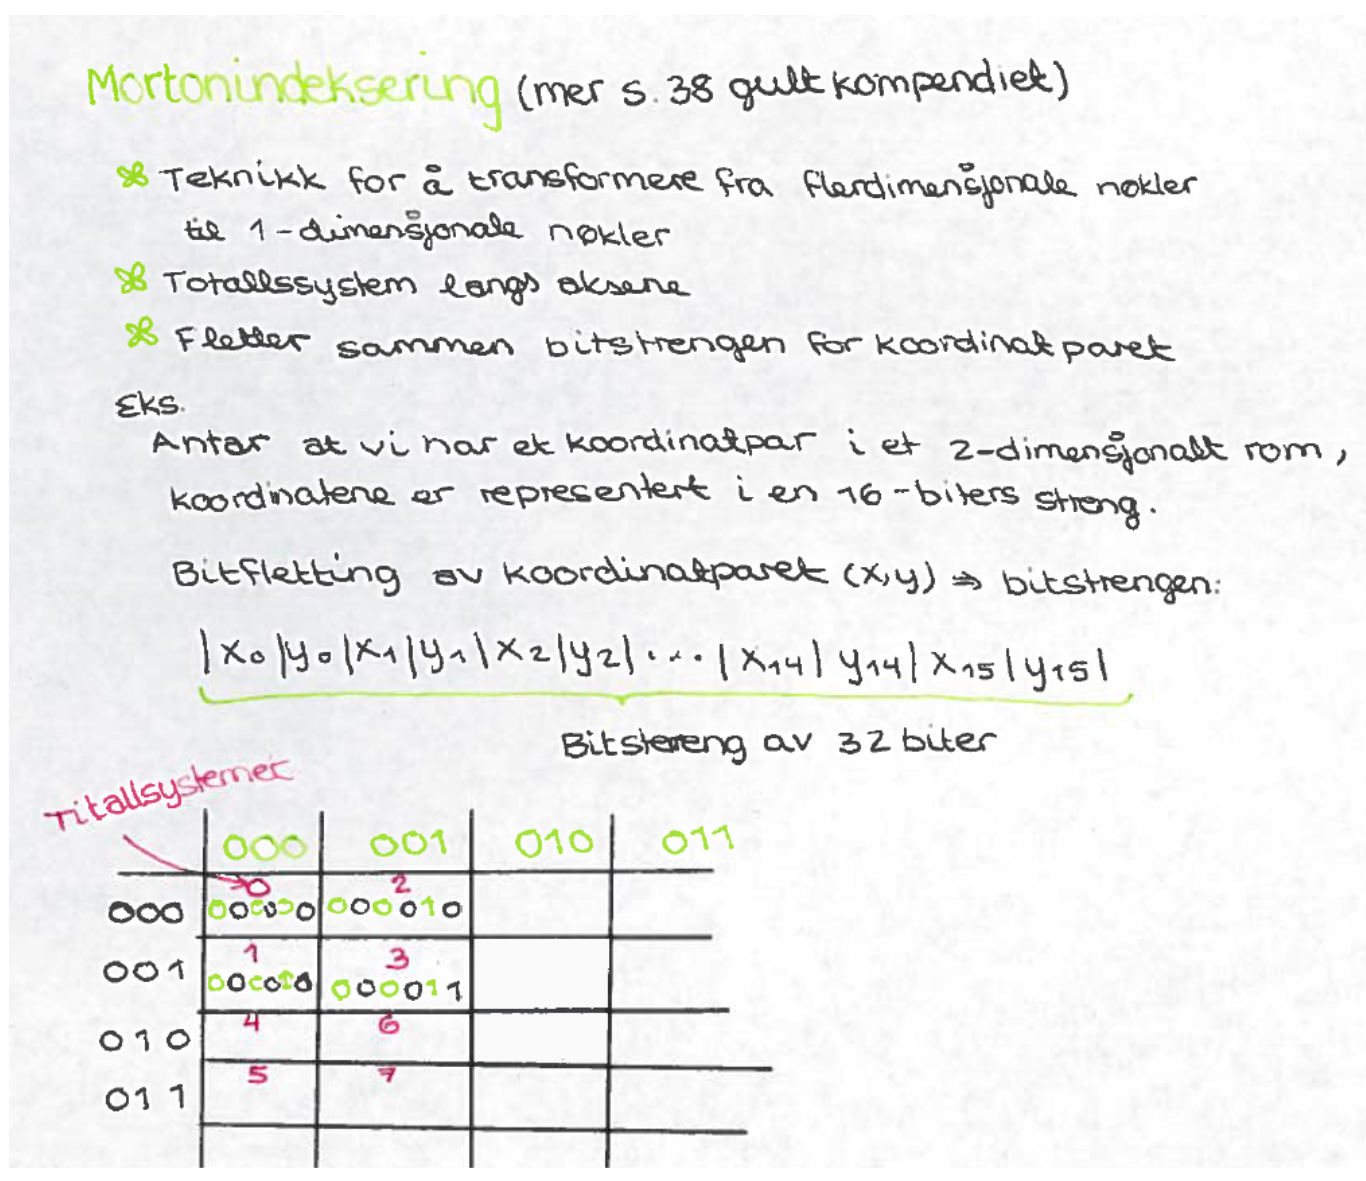 Mortonindeksering (mer s. 38 gult kompendiet)
Teknikk for å transformere fra flerdimensjonale nøkler
til 1-dimensjonale nøkler
Totallssystem langs aksene
Fletter sammen bitstrengen for koordinatparet
Eks.
Antar at vi har et koordinatpar i et 2-dimensjonalt rom,
koordinatene er representert i en 16-biters streng.
Bitfletting av koordinatparet (x,y) ⇒ bitstrengen:
|x₀|y₀|x₁|y₁|x₂|y₂|...|x₁₄|y₁₄|x₁₅|y₁₅|
Bitstereng av 32 biter
Titallsystemet
000 001 010 011
0 2
000 000000 000010
1 3
001 000011
4 6
010
5 7
011